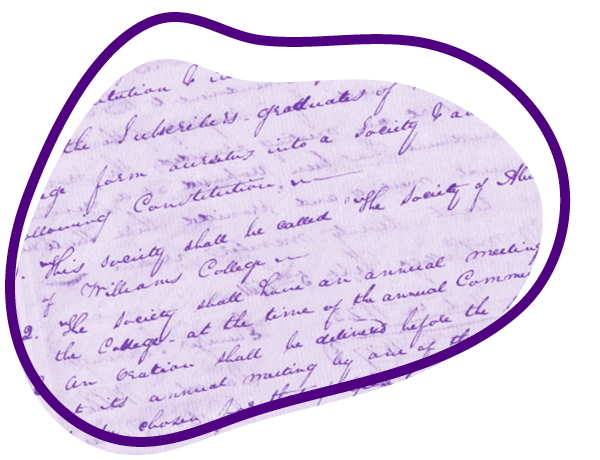 the Subscribers. graduates of
form ourselves into a Society & a
Constitution.
1. This society shall be called "The Society of Alu
of Williams College."
2. The Society shall have an annual meeting
the College. at the time of the annual Comme
An Oration shall be delivered before the
t its annual meeting by one of th
chosen